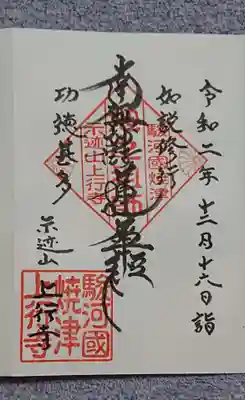 令和二年十二月十六日詣
如説修行
南無妙法蓮華経
功徳甚多
示迹山
上行寺
駿河國焼津
示迹山上行寺
駿河國
焼津
上行寺